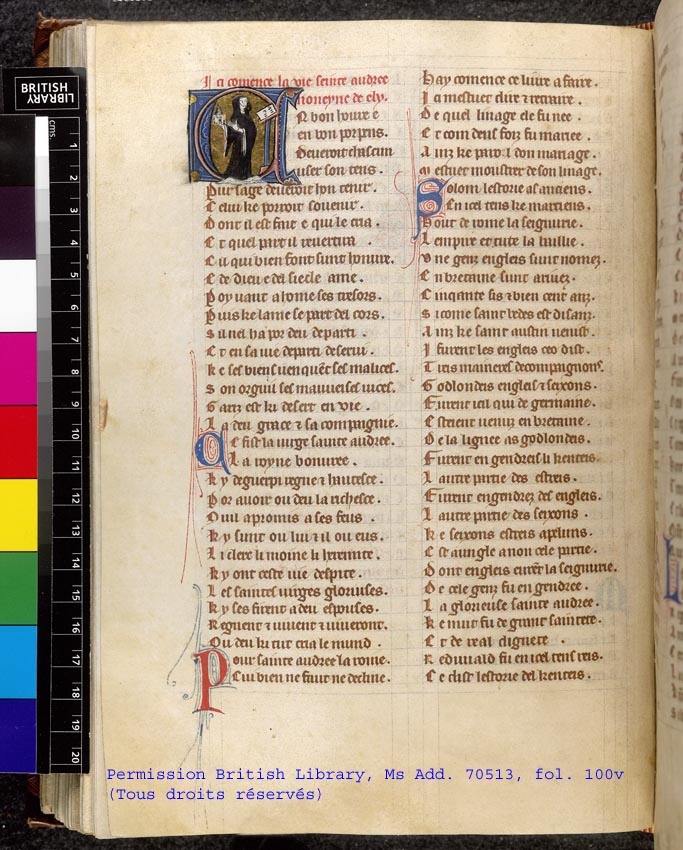 I ci comence la vie seinte audree
noneyne de ely.
N bon houre e
en bon porpens.
Deueroit chascun
user son tens.
Pur sage deueroit hon tenir.
C elui ke porroit souenir.
D ont il est fait e qui le cria.
E t quel part il reuertira.
C il qui bien font sunt honure.
E de dieu e del siecle ame.
P oy uaut a home ses tresors.
P uis ke lame se part del cors.
S il nel ha por deu departi.
E t en sa uie departi deserui.
K e ses biens uenquet ses malices.
S on orguil ses mauueises uices.
G arri est ki desert en vie.
L a deu grace e sa compaignie.
C e fist la uirge sainte audree.
L a royne bonuree.
K y deguerpi regne e hautesce.
P or auoir ou deu la richesce.
Q uil a promis a ses feus.
K y sunt ou lui e il ou eus.
L i clerc li moine li heremite.
K y ont ceste uie despite.
L es saintes uirges glorieuses.
K y ses firent a deu espouses.
R egnent e uiuent e uiueront.
O u deu ki tut cria le mund.
P our sainte audree la roine.
C ui bien ne faut ne decline.
H ay comence ce liure a faire.
I ci mestuet dire e retraire.
D e quel linage ele fu nee.
E t com deus foiz fu mariee.
A inz ke parol don mariage.
M estuet moustrer de son linage.
S olom lestorie as anciens.
E n icel tens ke marciens.
H out de rome la seignurie.
L empire et tute la baillie.
U ne genz engleis sunt nomez.
E n bretaine sunt ariuez.
C inqante sis e bien cent anz.
S i come saint bedes est disanz.
A inz ke saint austin uenist.
I furent les engleis ceo dist.
T reis maineres de compaignons.
G odlondeis engleis e seixons.
F urent icil qui de germaine.
E steient uenuz en bretaine.
D e la lignee as godlondeis.
F urent engendreis li kenteis.
L autre partie des estreis.
F urent engendrez des engleis.
L autre partie des seixons.
K e seixons estreis apeluns.
E st aungle a non cele partie.
D ont engleis eurent la seignurie.
D e cele genz fu engendree.
L a glorieuse sainte audree.
K e mut fu de grant saintete.
E t de real dignete.
R edwald fu en icel tens reis.
C e dist lestorie del kenteis.
BRITISH
LIBRARY
cms.
1
2
3
4
5
6
7
8
9
10
11
12
13
14
15
16
17
18
19
20
Permission British Library, Ms Add. 70513, fol. 100v
(Tous droits réservés)